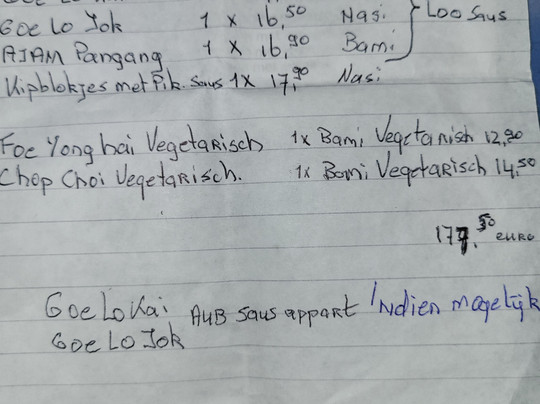 Goe Lo Jok 1 x 16,50 Nasi Loo Saus
AJAM Pangang 1 x 16,90 Bami
Kipblokjes met Pik. Saus 1x 17,90 Nasi
Foe Yong hai VegetaRisch 1x Bami Vegetarisch 12,90
Chop Choi VegetaRisch. 1x Bami VegetaRisch 14,50
euro
Goe Lo Kai AUB Saus appart Indien mogelijk
Goe Lo Jok